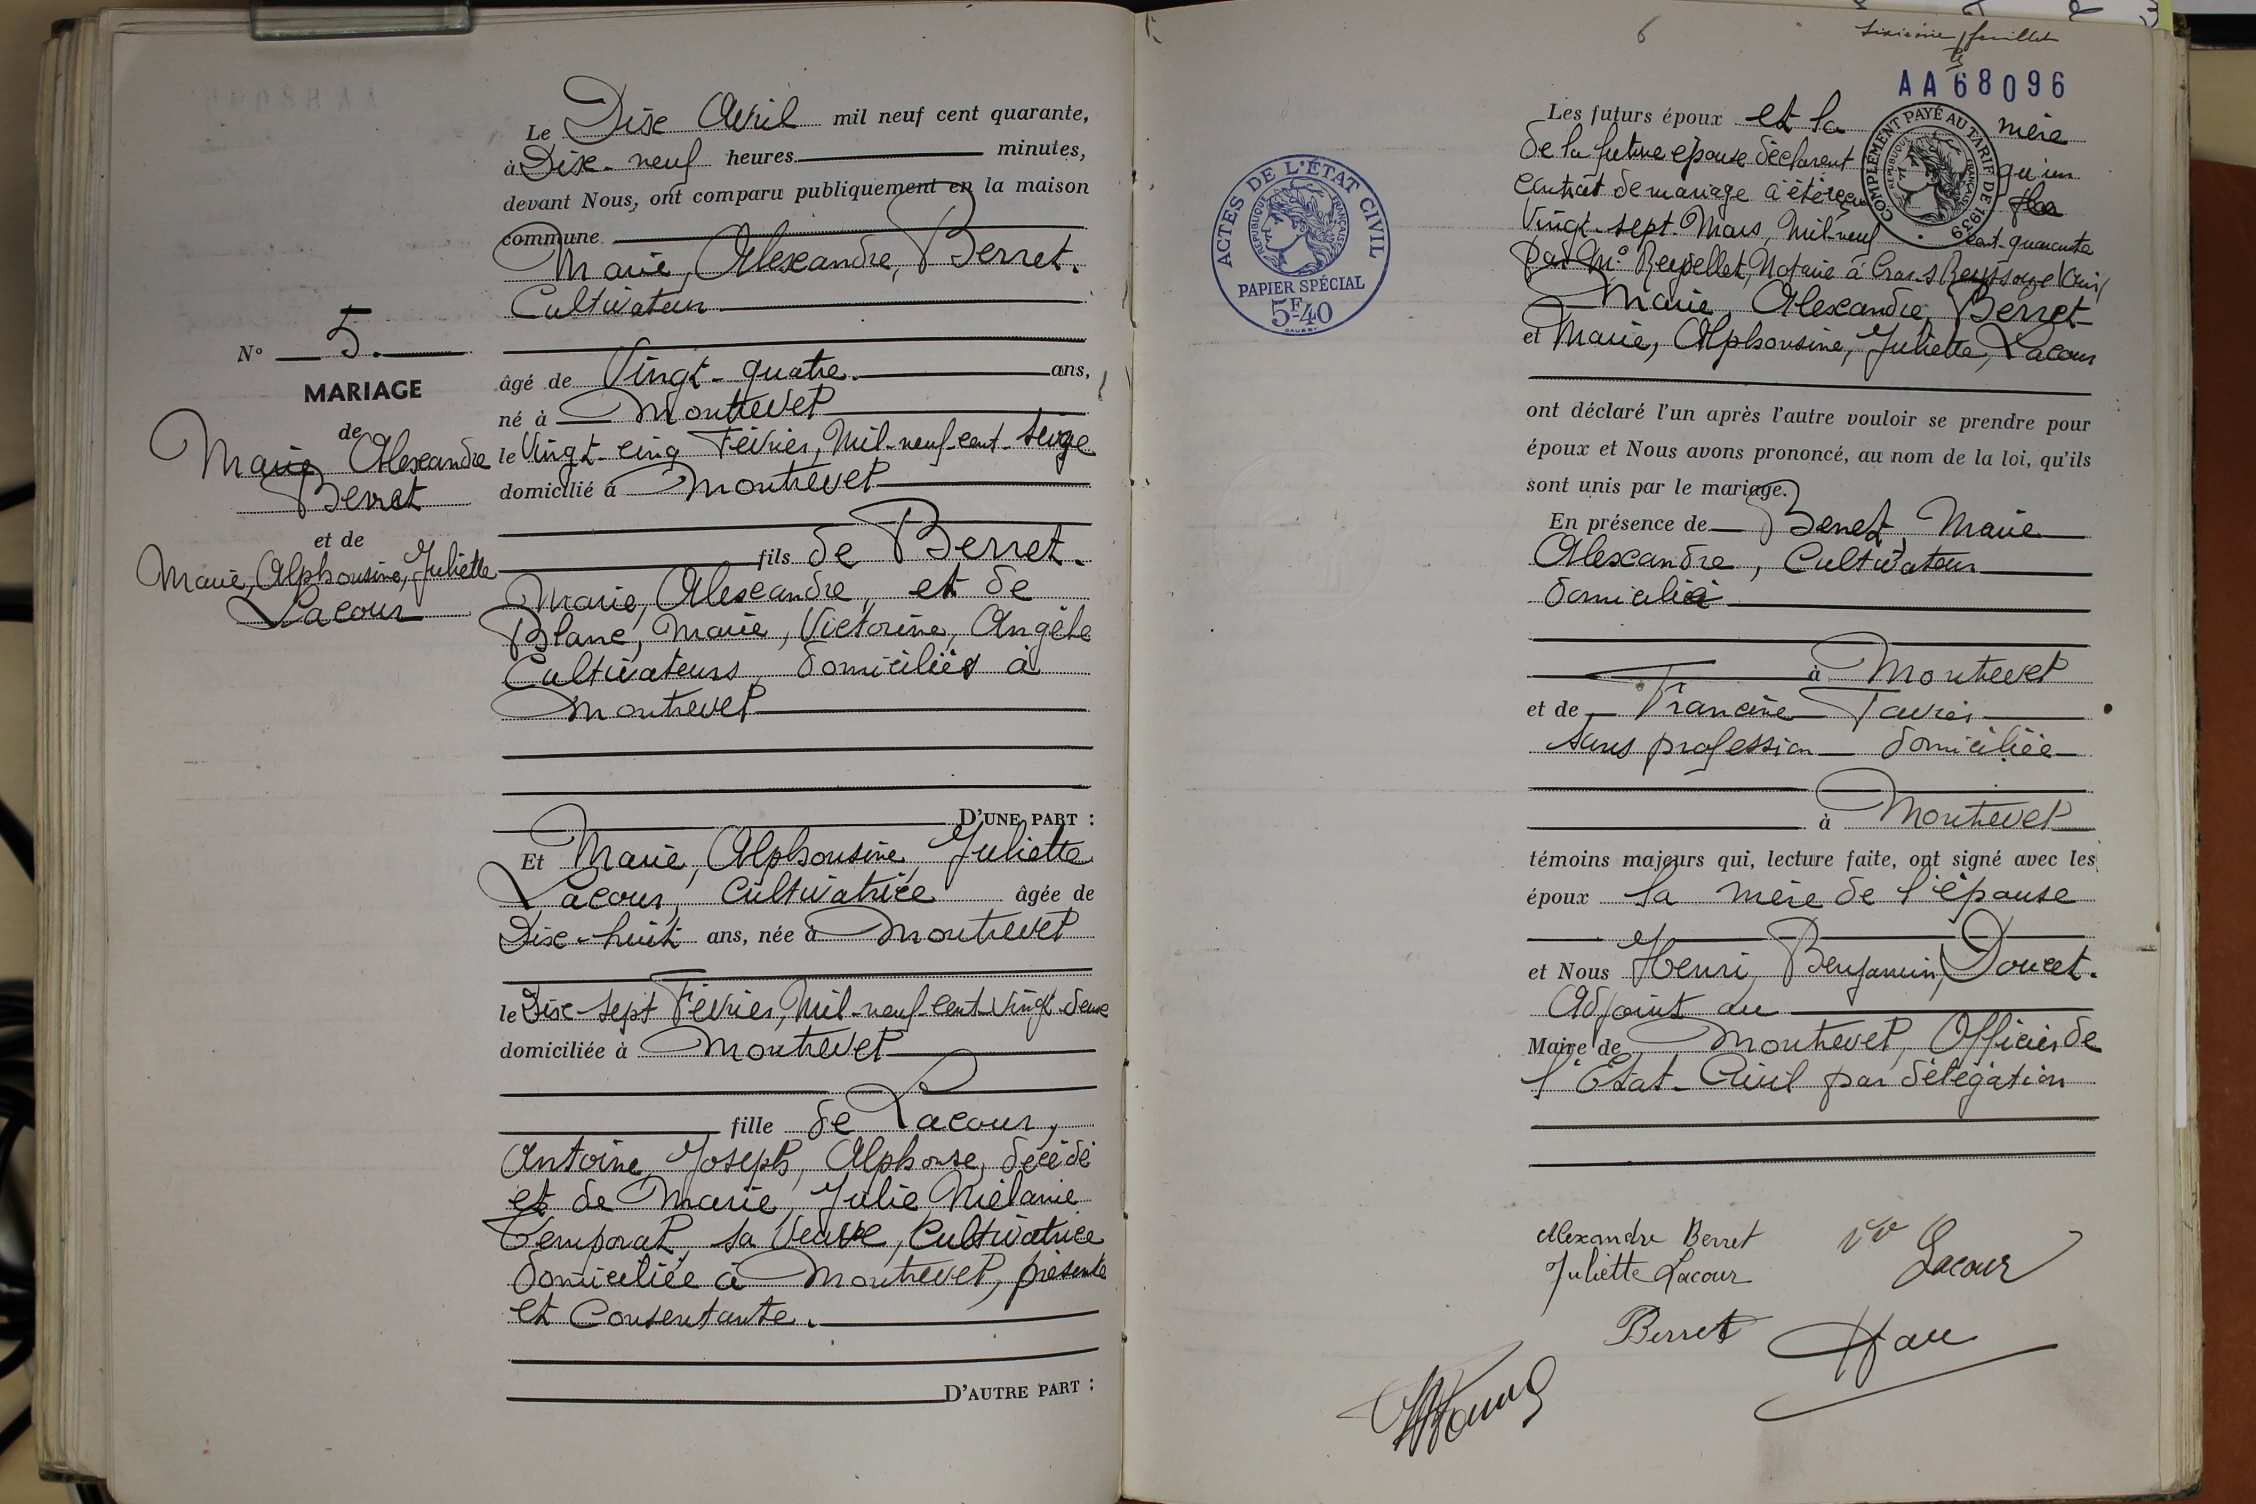 N° 5.
MARIAGE
de
Marie Alexandre
Berret
et de
Marie, Alphonsine, Juliette
Lacour
Le Dix Avril mil neuf cent quarante,
à Dix-neuf heures minutes,
devant Nous, ont comparu publiquement en la maison
commune
Marie, Alexandre, Berret.
Cultivateur
âgé de Vingt-quatre ans,
né à Montrevel
le Vingt-cinq Février, Mil-neuf-cent-seize
domicilié à Montrevel
fils de Berret.
Marie, Alexandre, et de
Blanc, Marie, Victorine, Angèle
Cultivateurs, domiciliés à
Montrevel
D'UNE PART :
Et Marie, Alphonsine, Juliette
Lacour, cultivatrice âgée de
Dix-huit ans, née à Montrevel
le Dix-sept Février, Mil-neuf-cent-Vingt-deux
domiciliée à Montrevel
fille de Lacour,
Antoine, Joseph, Alphonse, décédé
et de Marie, Julie, Mélanie
Temporal, sa Veuve, Cultivatrice
domiciliée à Montrevel, présente
et Consentante.
D'AUTRE PART :
6
sixième feuillet
AA68096
ACTES DE L'ÉTAT CIVIL
RÉPUBLIQUE FRANÇAISE
PAPIER SPÉCIAL
5F-40
COMPLÉMENT PAYÉ AU TARIF DE 1939
RÉPUBLIQUE FRANÇAISE
Les futurs époux et la mère
de la future épouse déclarent qu'un
contrat de mariage a été reçu
Vingt-sept-Mars, Mil-neuf cent-quarante
par Me Notaire à Cras-s-Reyssouze (Ain)
Marie, Alexandre, Berret
et Marie, Alphonsine, Juliette, Lacour
ont déclaré l'un après l'autre vouloir se prendre pour
époux et Nous avons prononcé, au nom de la loi, qu'ils
sont unis par le mariage.
En présence de Berret, Marie
Alexandre, Cultivateur
domicilié
à Montrevel
et de Francine
sans profession domiciliée
à Montrevel
témoins majeurs qui, lecture faite, ont signé avec les
époux la mère de l'épouse
et Nous Henri, Benjamin, Doucet.
Adjoint au
Maire de Montrevel, Officier de
l'Etat-Civil par délégation
Alexandre Berret
Vve Lacour
Juliette Lacour
Berret